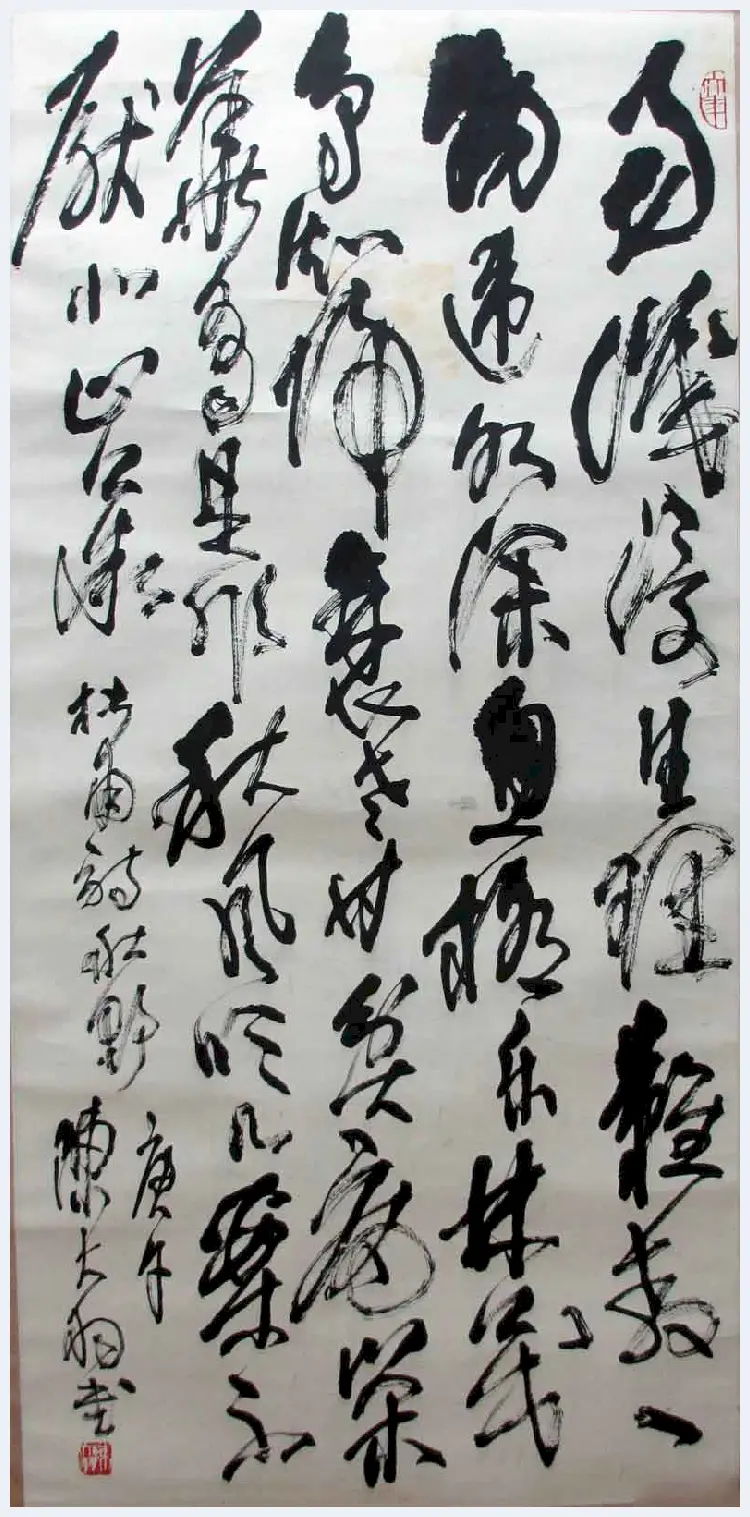 易識浮生理難教一
物違水深魚極樂林茂
鳥知歸衰老甘貧病榮
華有是非秋風吹几杖不
厭北山薇
杜甫詩秋野
庚午
陳大羽書